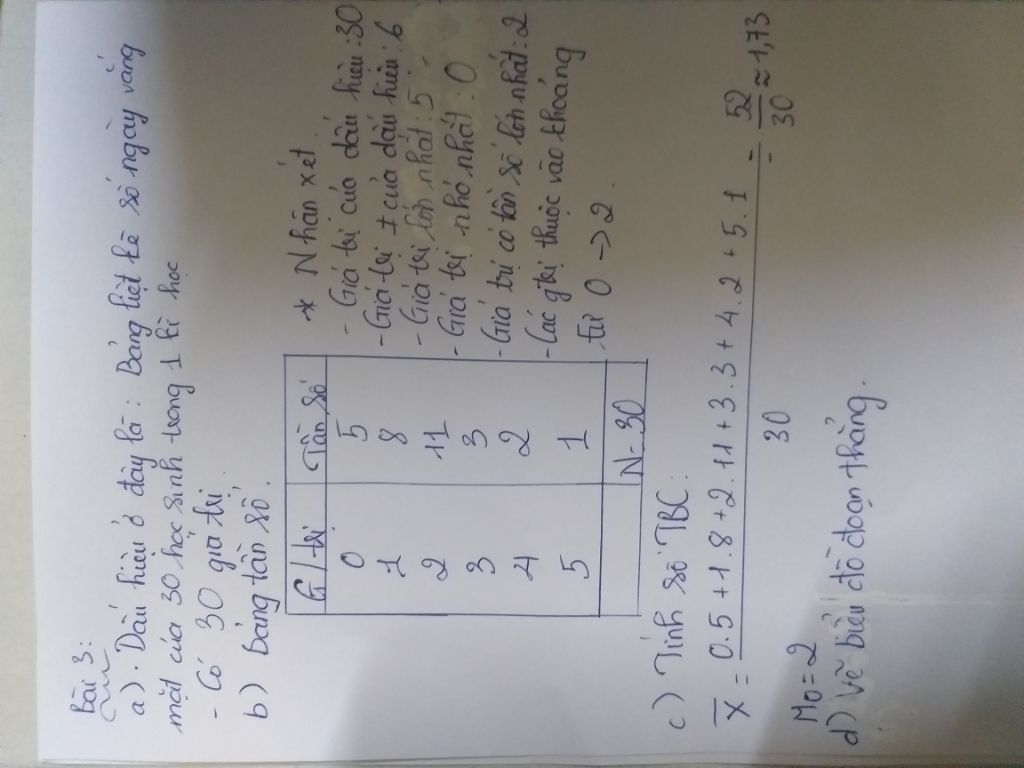 Bài 3:
a). Dấu hiệu ở đây là: Bảng liệt kê số ngày vắng
mặt của 30 học sinh trong 1 kì học
- Có 30 giá trị
b) bảng tần số.
G/trị Tần số
0 5
1 8
2 11
3 3
4 2
5 1
N=30
* Nhận xét
- Giá trị của dấu hiệu: 30
- Giá trị ≠ của dấu hiệu: 6
- Giá trị lớn nhất: 5
- Giá trị nhỏ nhất: 0
- Giá trị có tần số lớn nhất: 2
- Các gtrị thuộc vào khoảng
từ 0 -> 2.
c) Tính số TBC:
X̄ = 0.5 + 1.8 + 2.11 + 3.3 + 4.2 + 5.1 / 30 = 52/30 ≈ 1,73
M₀ = 2
d) Vẽ biểu đồ đoạn thẳng.